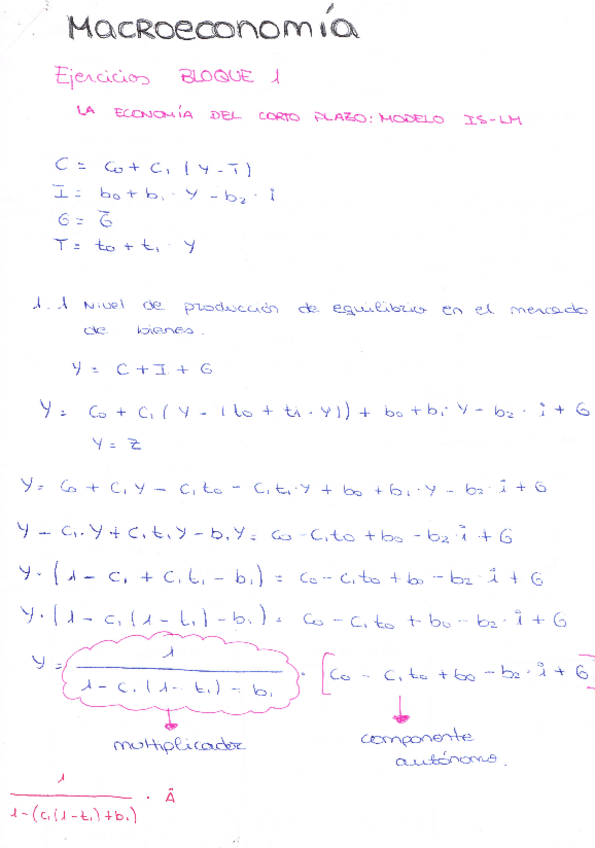 Macroeconomía
Ejercicios BLOQUE 1
LA ECONOMÍA DEL CORTO PLAZO: MODELO IS-LM
C = C₀ + C₁ (Y - T̄)
I = b₀ + b₁ · Y - b₂ · i
G = Ḡ
T = t₀ + t₁ · Y
1.1 Nivel de producción de equilibrio en el mercado
de bienes.
Y = C + I + G
Y = C₀ + C₁ ( Y - (t₀ + t₁ · Y)) + b₀ + b₁ · Y - b₂ · i + G
Y = Z
Y = C₀ + C₁Y - C₁t₀ - C₁t₁·Y + b₀ + b₁·Y - b₂·i + G
Y - C₁·Y + C₁t₁Y - b₁Y = C₀ - C₁t₀ + b₀ - b₂·i + G
Y · (1 - C₁ + C₁t₁ - b₁) = C₀ - C₁t₀ + b₀ - b₂·i + G
Y · (1 - C₁(1 - t₁) - b₁) = C₀ - C₁t₀ + b₀ - b₂·i + G
Y = 1 / 1 - C₁(1 - t₁) - b₁ · [C₀ - C₁t₀ + b₀ - b₂·i + G]
multiplicador
componente
autónomo.
1 / 1-(C₁(1-t₁)+b₁) · Ā